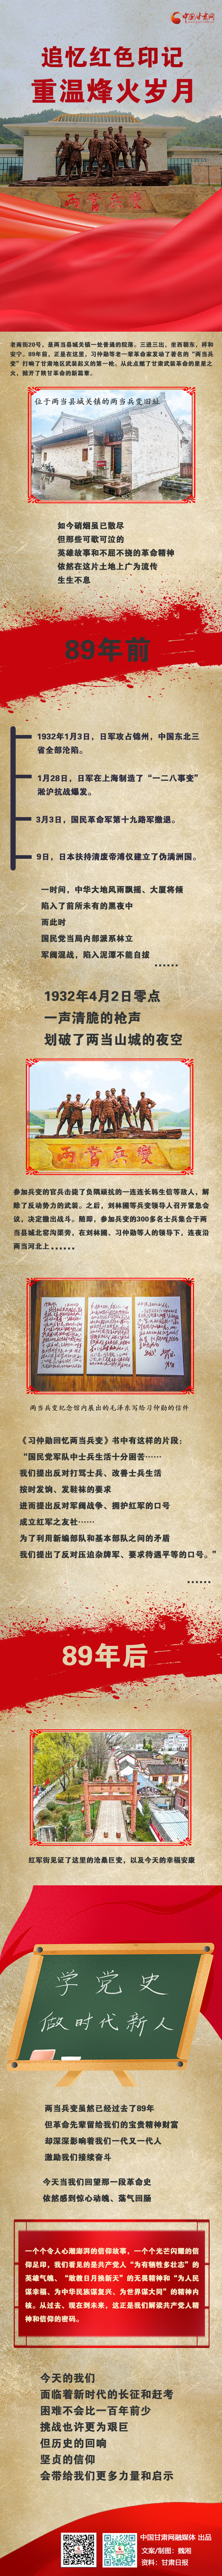 中国甘肃网
追忆红色印记
重温烽火岁月
两当兵变
老南街20号，是两当县城关镇一处普通的院落。三进三出，坐西朝东，祥和
安宁。89年前，正是在这里，习仲勋等老一辈革命家发动了著名的“两当兵
变”打响了甘肃地区武装起义的第一枪。从此点燃了甘肃武装革命的星星之
火，掀开了陕甘革命的新篇章。
位于两当县城关镇的两当兵变旧址
如今硝烟虽已散尽
但那些可歌可泣的
英雄故事和不屈不挠的革命精神
依然在这片土地上广为流传
生生不息
89年前
1932年1月3日，日军攻占锦州，中国东北三
省全部沦陷。
1月28日，日军在上海制造了“一二八事变”
淞沪抗战爆发。
3月3日，国民革命军第十九路军撤退。
9日，日本扶持清废帝溥仪建立了伪满洲国。
一时间，中华大地风雨飘摇、大厦将倾
陷入了前所未有的黑夜中
而此时
国民党当局内部派系林立
军阀混战，陷入泥潭不能自拔
······
1932年4月2日零点
一声清脆的枪声
划破了两当山城的夜空
两当兵变
参加兵变的官兵击毙了负隅顽抗的一连连长韩生信等敌人，解
除了反动势力的武装。之后，刘林圃等兵变领导人召开紧急会
议，决定撤出战斗。随即，参加兵变的300多名士兵集合于两
当县城北窑沟渠旁，在刘林圃、习仲勋等人的领导下，连夜沿
两当河北上······
两当兵变纪念馆内展出的毛泽东写给习仲勋的信件
《习仲勋回忆两当兵变》书中有这样的片段：
“国民党军队中士兵生活十分困苦······
我们提出反对打骂士兵、改善士兵生活
按时发饷、发鞋袜的要求
进而提出反对军阀战争、拥护红军的口号
成立红军之友社······
为了利用新编部队和基本部队之间的矛盾
我们提出了反对压迫杂牌军、要求待遇平等的口号。”
······
89年后
红军街见证了这里的沧桑巨变，以及今天的幸福安康
学党史
做时代新人
两当兵变虽然已经过去了89年
但革命先辈留给我们的宝贵精神财富
却深深影响着我们一代又一代人
激励我们接续奋斗
今天当我们回望那一段革命史
依然感到惊心动魄、荡气回肠
一个个令人心潮澎湃的信仰故事，一个个光芒闪耀的信
仰足印，我们看见的是共产党人“为有牺牲多壮志”的
英雄气魄、“敢教日月换新天”的无畏精神和“为人民
谋幸福、为中华民族谋复兴、为世界谋大同”的精神内
核。从过去、现在到未来，这正是我们解读共产党人精
神和信仰的密码。
今天的我们
面临着新时代的长征和赶考
困难不会比一百年前少
挑战也许更为艰巨
但历史的回响
坚贞的信仰
会带给我们更多力量和启示
中国甘肃网融媒体 出品
文案/制图：魏湘
资料：甘肃日报